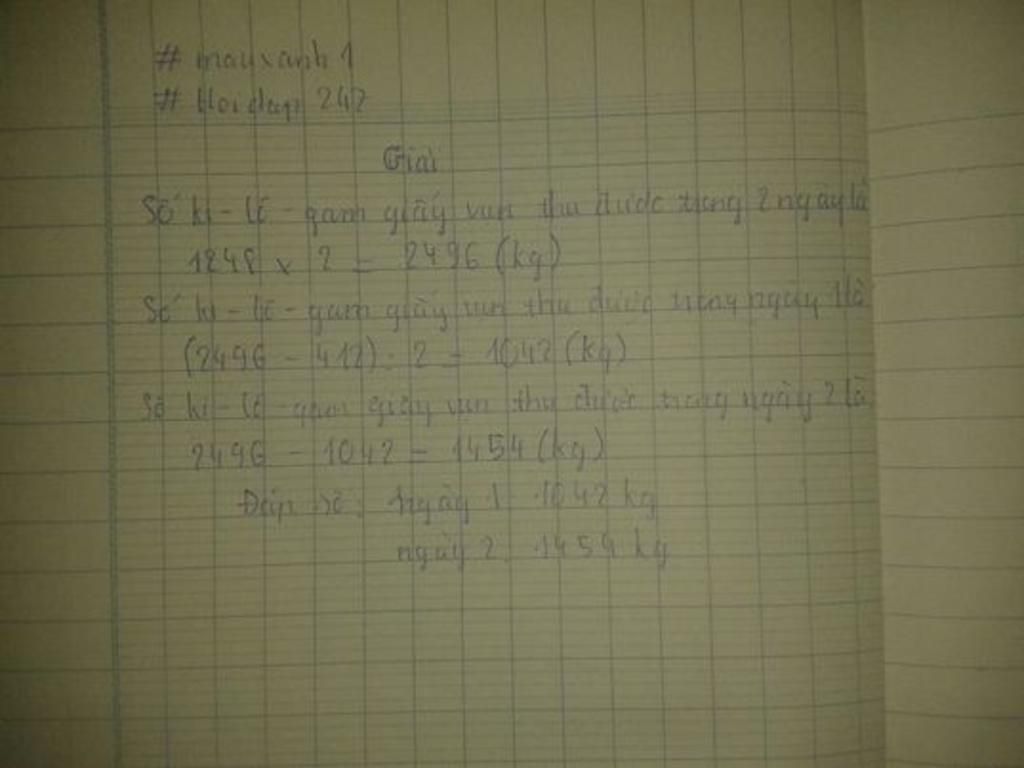 # mayxanh 1
# Hoidap 247
Giải
Số ki - lô - gam giấy vụn thu được trong 2 ngày là
1248 x 2 = 2496 (kg)
Số ki - lô - gam giấy vụn thu được trong ngày 1 là
(2496 - 412) : 2 = 1042 (kg)
Số ki - lô - gam giấy vụn thu được trong ngày 2 là
2496 - 1042 = 1454 (kg)
Đáp số : Ngày 1 : 1042 kg
ngày 2 : 1454 kg